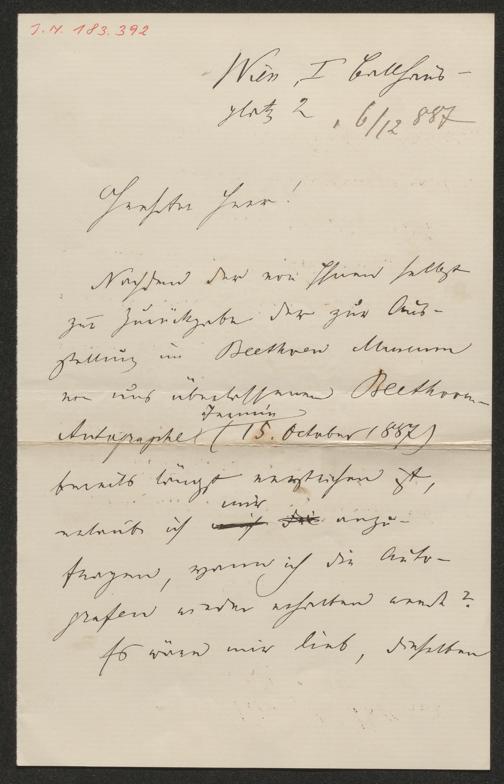 J.N. 183.392
Wien, I Ballhaus-
platz 2
6/12 887
Geehrter Herr!
Nachdem der von Ihnen selbst
zur Zurückgabe der zur Aus-
stellung im Beethoven Museum
von uns überlassenen Beethoven-
Termin
Autographe (15. October 1887)
bereits längst verstrichen ist,
mir
erlaube ich mich die anzu-
fragen, wann ich die Auto-
grafen wieder erhalten werde?
Es wäre mir lieb, dieselben